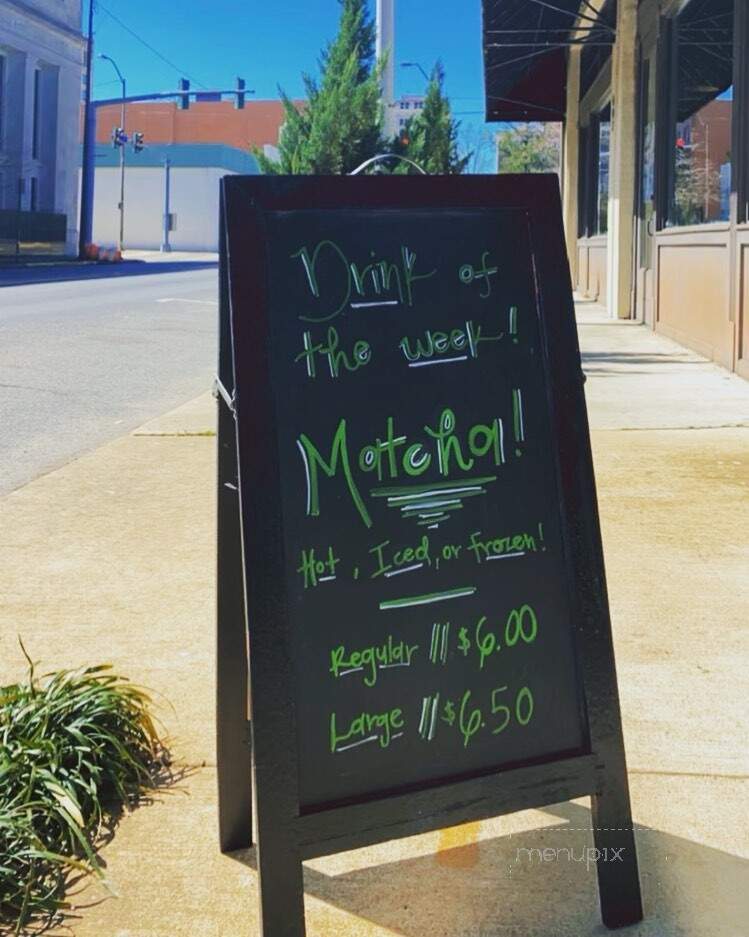 Drink of
the week!
Matcha!
Hot, Iced, or frozen!
Regular /// $6.00
Large /// $6.50
menupix